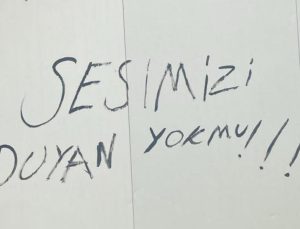 SESİMİZİ
DUYAN YOKMU!!!